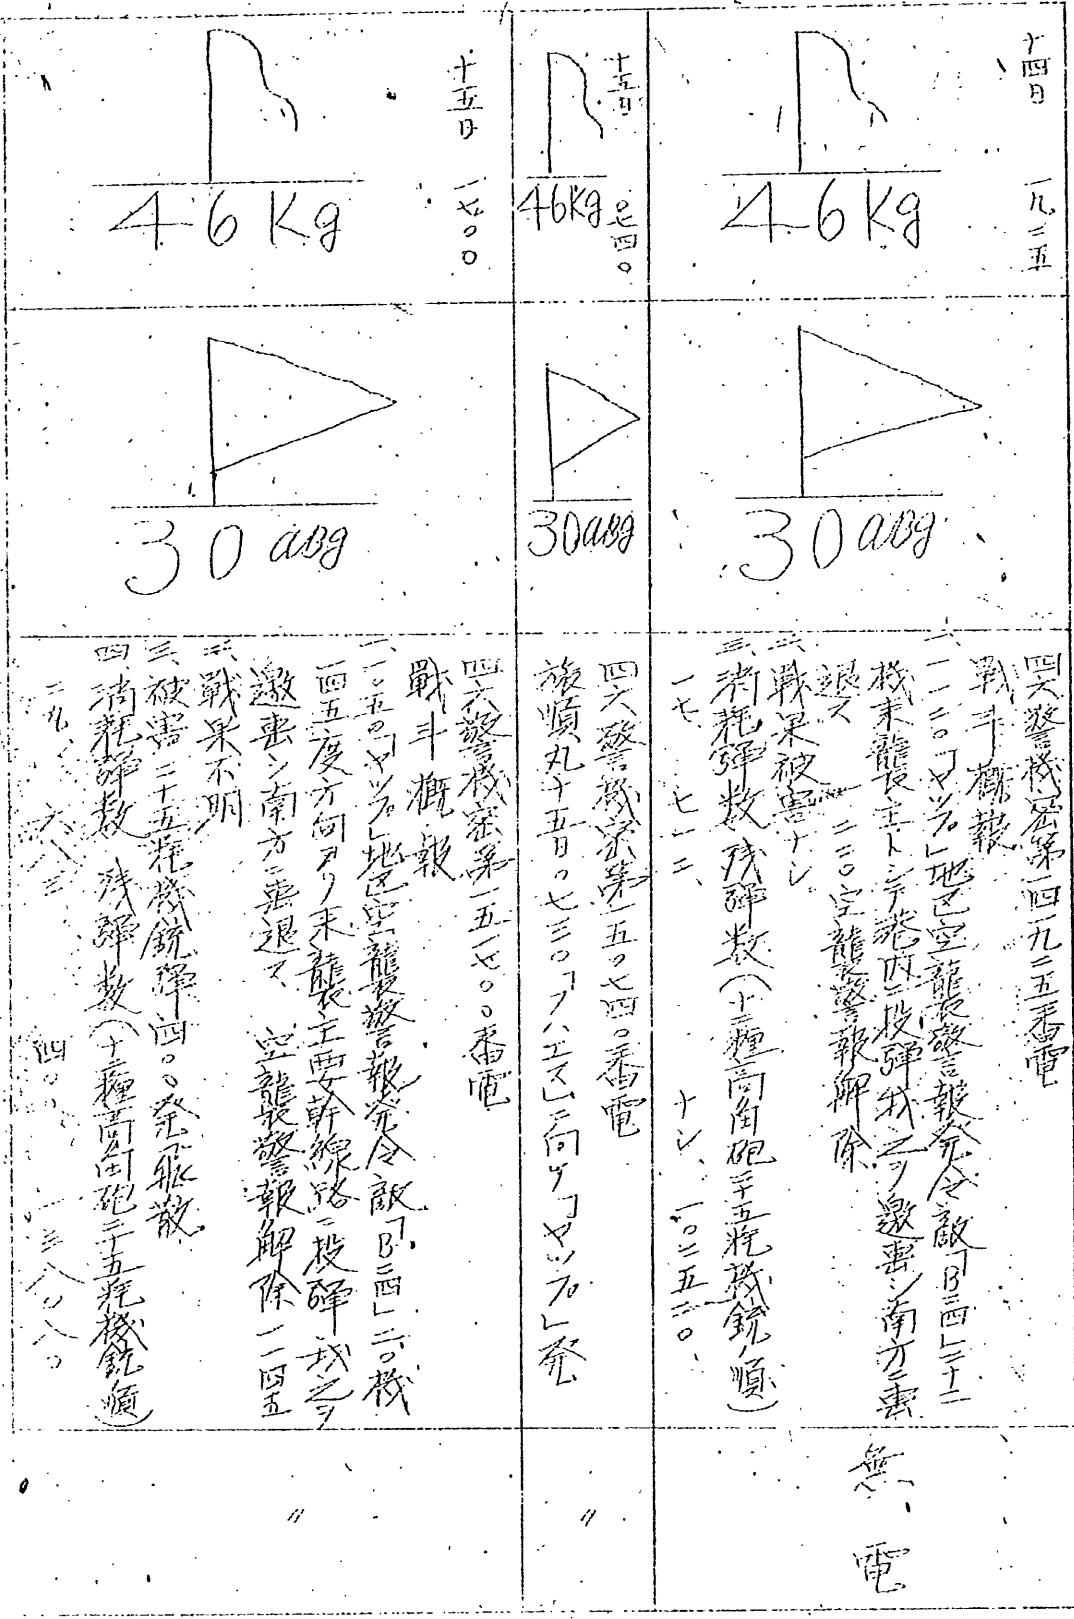 十四日 一九二五
46Kg
30aBg
四六警機密第一四一九二五番電
戰斗概報
一、一一二〇「ヤップ」地区空襲警報発令敵「B二四」二十二
機来襲主トシテ港内ニ投弾我之ヲ邀撃シ南方ニ撃
退ス 空襲警報解除
二、戰果被害ナシ
三、消耗弾数残弾数(十二糎高角砲二十五粍機銃ノ順)
無電
十五日 〇七四〇
46Kg
30aBg
四六警機密第一五〇七四〇番電
旅順丸十五日〇七三〇「ハエス」ニ向ケ「ヤップ」発
〃
十五日 一七〇〇
46Kg
30aBg
四六警機密第一五一七〇〇番電
戰斗概報
一、一〇五〇「ヤップ」地区空襲警報発令敵「B二四」二〇機
一四五度方向ヨリ来襲主要幹線路ニ投弾我之ヲ
邀撃シ南方ニ撃退ス 空襲警報解除一一四五
二、戰果不明
三、被害二十五粍機銃弾四〇〇発飛散
四、消耗弾数 残弾数(十二糎高角砲二十五粍機銃ノ順)
〃